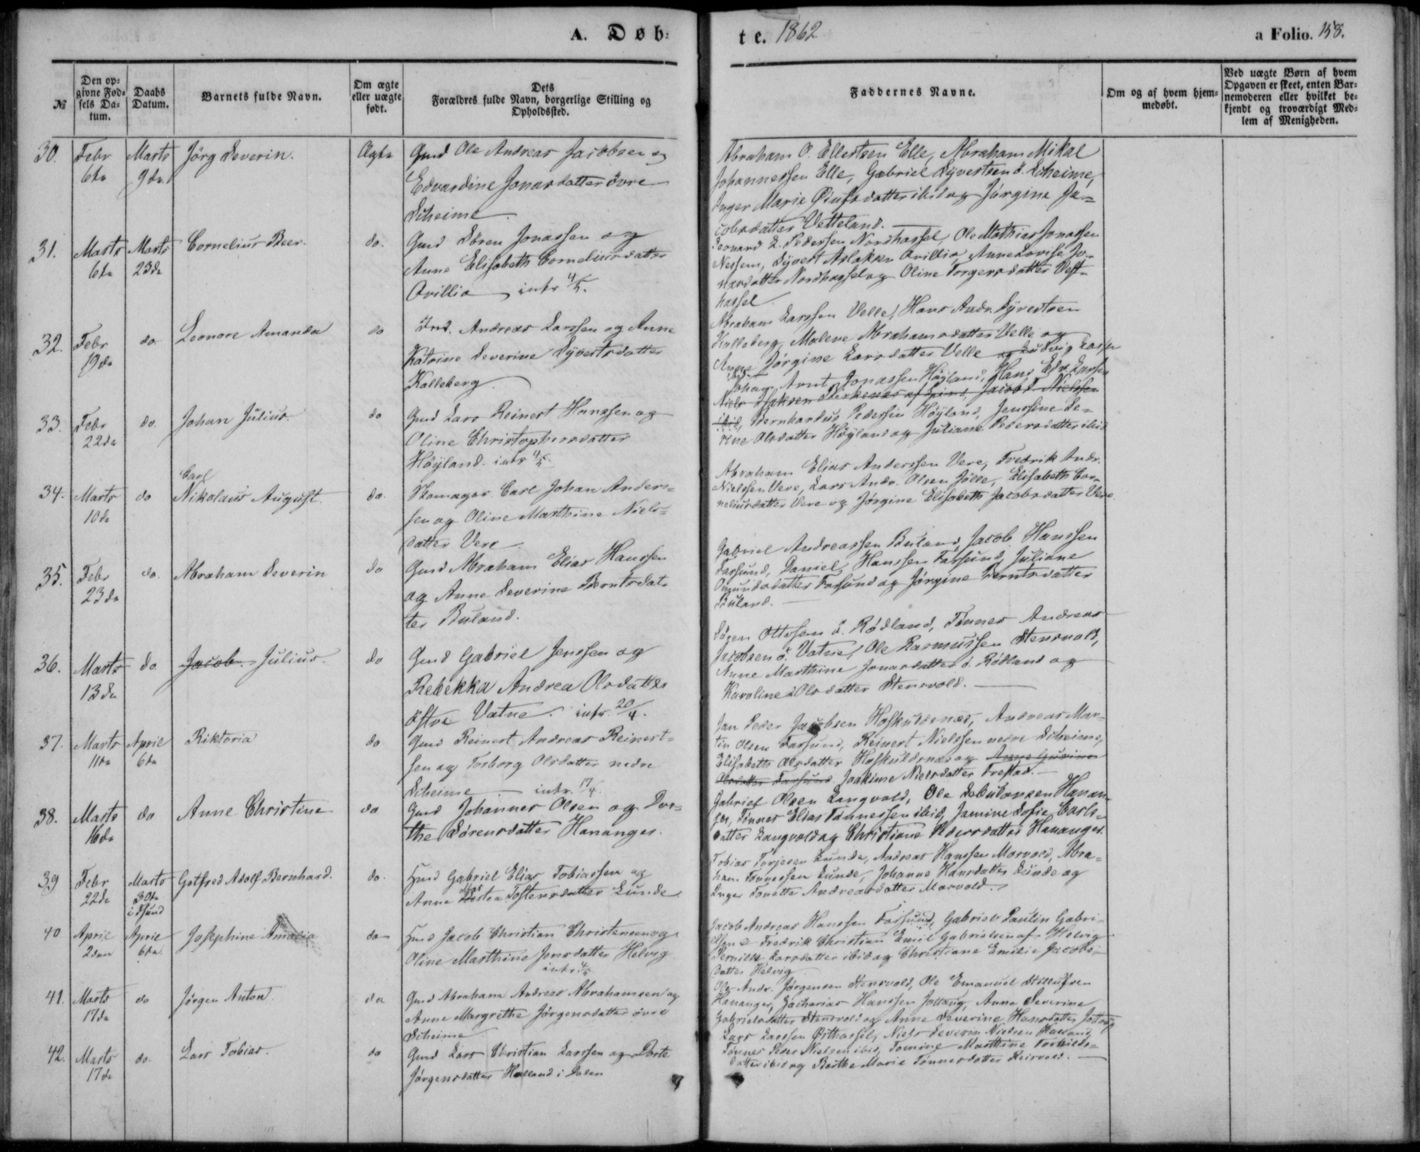 A. Døb-
te. 1862
a Folio. 158.
№
Den op-
givne Fød-
sels Da-
tum.
Daabs
Datum.
Barnets fulde Navn.
Om ægte
eller uægte
født.
Dets
Forældres fulde Navn, borgerlige Stilling og
Opholdssted.
Faddernes Navne.
Om og af hvem hjem-
medøbt.
Ved uægte Børn af hvem
Opgaven er skeet, enten Bar-
nemoderen eller hvilket be-
kjendt og troværdigt Med-
lem af Menigheden.
30. Febr 6te Marts 9de Jørg Severin. Ægte
Gmd Ole Andreas Jacobsen og
Edvardine Jonasdatter øvre
Scheime
Abraham O. Ellertsen Elle, Abraham Mikal
Johannessen Elle, Gabriel Syvertsen ø. Scheime,
Inger Marie datter ibid og Jørgine Ja-
cobsdatter Vetteland.
31. Marts 6te Marts 23de Cornelius Beer. do.
Gmd Søren Jonassen og
Anne Elisabeth Corneliusdatter
Qvillio intr. 4/5.
Leonard L. Pedersen Nordhassel, Ole Mathias Jonassen
Nessem, Syvert Aslaksen Qvillio, Anne Lovise Jo-
nasdatter Nordhassel og Oline Torgersdatter Vest-
hassel
32. Febr 19de do. Leonore Amanda do
Ind. Andreas Larssen og Anne
Katrine Severine Syvertsdatter
Kalleberg
Abraham Larssen Velle, Hans Andr. Syvertsen
Kalleberg, Malene Abrahamsdatter Velle og
Anne Jørgine Larsdatter Velle og Ludvig
33. Febr 22de do. Johan Julius do
Gmd Lars Reinert Hanssen og
Oline Christophersdatter
Høyland. intr 4/5.
Johan Arnt Jonassen Høyland, Hans Edv. Larsen
ibid, Bernhardus Pedersen Høyland, Jensine Se-
rine Olsdatter Høyland og Juliane Pedersdatter ibid
34. Marts 10de do Carl
Nikolaus August do.
Skomager Carl Johan Anders-
sen og Oline Marthine Niels-
datter Vere
Abraham Elias Anderssen Vere, Fredrik Andr.
Nielssen Vere, Lars Andr. Olsen Jølle, Elisabeth Cor-
neliusdatter Vere og Jørgine Elisabeth Jacobsdatter Vere
35. Febr 23de do. Abraham Severin do
Gmd Abraham Elias Hanssen
og Anne Severine Berntsdat-
ter Buland.
Gabriel Andreassen Buland, Jacob Hanssen
Farsund, Daniel Hanssen Farsund, Juliane
datter Farsund og Jørgine Berntsdatter
Buland.
36. Marts 13de do Jacob Julius. do
Gmd Gabriel Jenssen og
Rebekka Andrea Olsdatter
østre Vatne. intr. 20/4.
Ottosen ø. Rødland, Tønnes Andreas
Jacobsen ø. Vatne, Ole Rasmussen Stensvold,
Anne Marthine Jonasdatter ø. Rødland og
Karoline Olsdatter Stensvold.
37. Marts 11te April 6te Riktoria do
Gmd Reinert Andreas Reinert-
sen og Torborg Olsdatter nedre
Scheime intr. 17/4.
Jan Peder Jacobsen Høskuldsnæs, Andreas Mar-
tin Olsen Farsund, Reinert Nielssen nedre Scheime,
Elisabeth Olsdatter Høskuldsnæs og Anne
Olsdatter Farsund Joakime Nielsdatter Frestad.
38. Marts 16de do Anne Christine do
Gmd Johannes Olsen og Dor-
the Sørensdatter Hananger.
Gabriel Olsen Langvold, Ole Hanan-
ger, Tønnes Elias Johnessen ibid, Jamine Sofie Carls-
datter Langvold og Christiane Pedersdatter Hananger.
39 Febr 22de Marts 30te
i Gotfred Adolf Bernhard. do.
Gmd Gabriel Elias Tobiassen og
Anne Tostensdatter Lunde
Tobias Torjesen Lunde, Andreas Hanssen Marvold, Abra-
ham Tønnessen Lunde, Johanne Hansdatter Lunde og
Inger Tonette Andreasdatter Marvold.
40 April 2den April 6te Josephine Amalia do
Gmd Jacob Christian Christensen og
Oline Marthine Jensdatter Helvig
Jacob Andreas Hanssen Farsund, Gabriel Paulin Gabri-
elsen Fredrik Christian Emil Gabrielsen af Helvig
Pernille Larsdatter ibid og Christiane Emilie Jacobs-
datter Helvig
41. Marts 17de do Jørgen Anton do
Gmd Abraham Andreas Abrahamsen og
Anne Margrethe Jørgensdatter øvre
Scheime
Ole Andr. Jørgensen Stensvold, Ole Emanuel
Hananger, Zacharias Hanssen Anne Severine
Gabrielsdatter Stensvold og Anne Severine Hansdatter
42. Marts 17de do. Lars Tobias. do
Gmd Lars Christian Larssen og Dorte
Jørgensdatter Haaland i Dalen
Lars Larssen Østhassel, Niels Severin Nielsen Haaland,
Tønnes Peder Nielsen ibid, Tomine Marthine
datter ibid og Berthe Marie Tønnesdatter Reirvold.